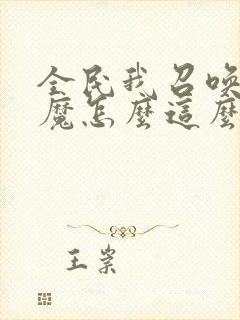 全民我召喚
魔怎麼這麼
王崇